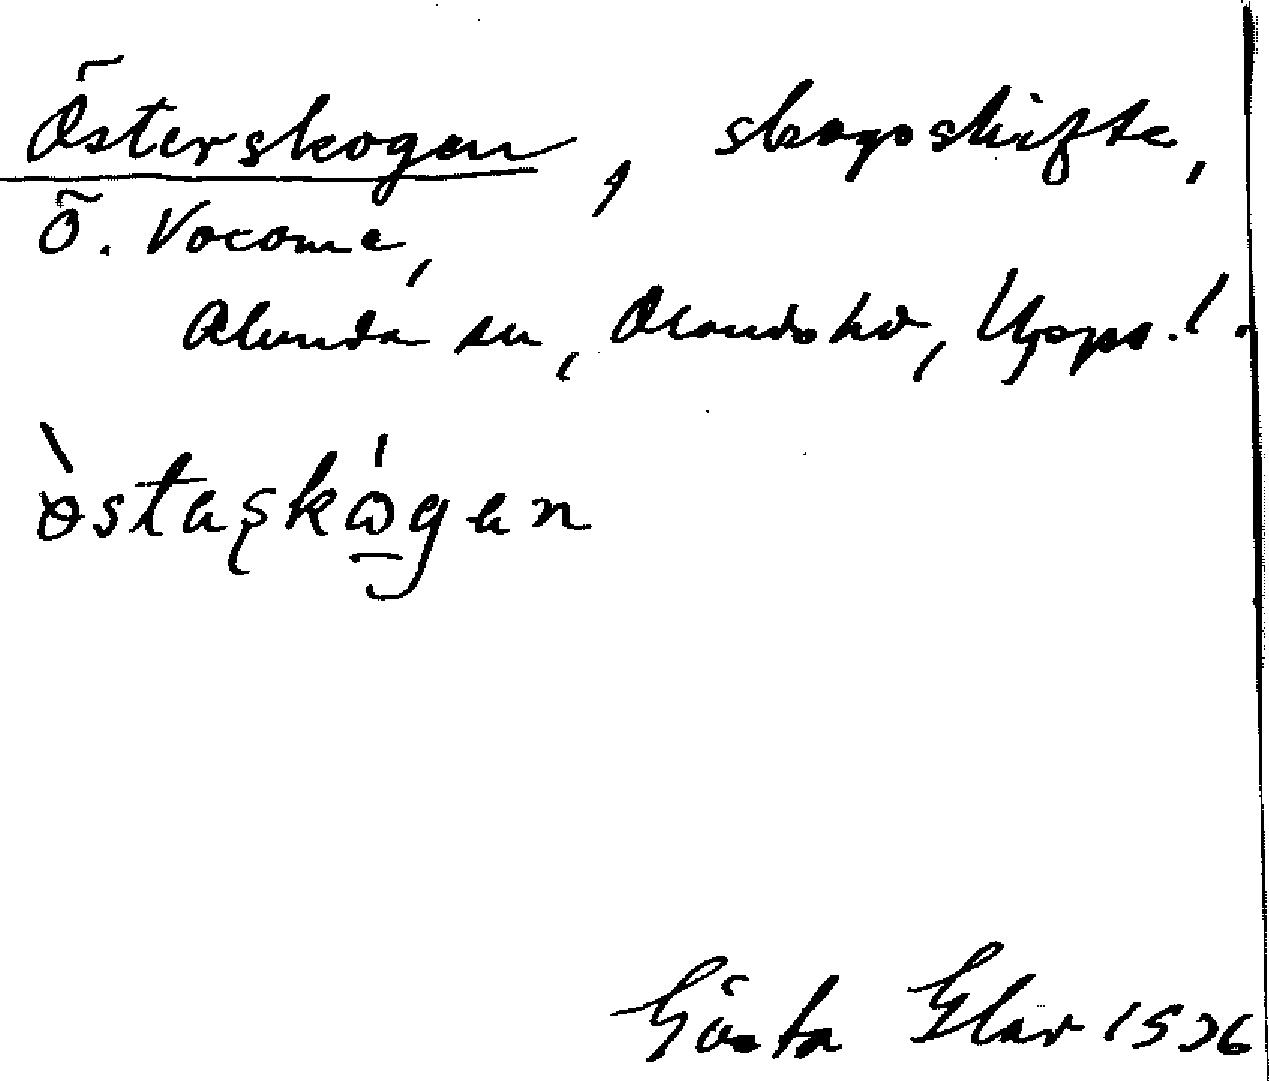 Österskogen, skogsskifte,
Ö. Vocome,
Alunda sn, Olands hd, Upps. l.
ɵ̀staʂkώ̲gen
Gösta Elar 1936